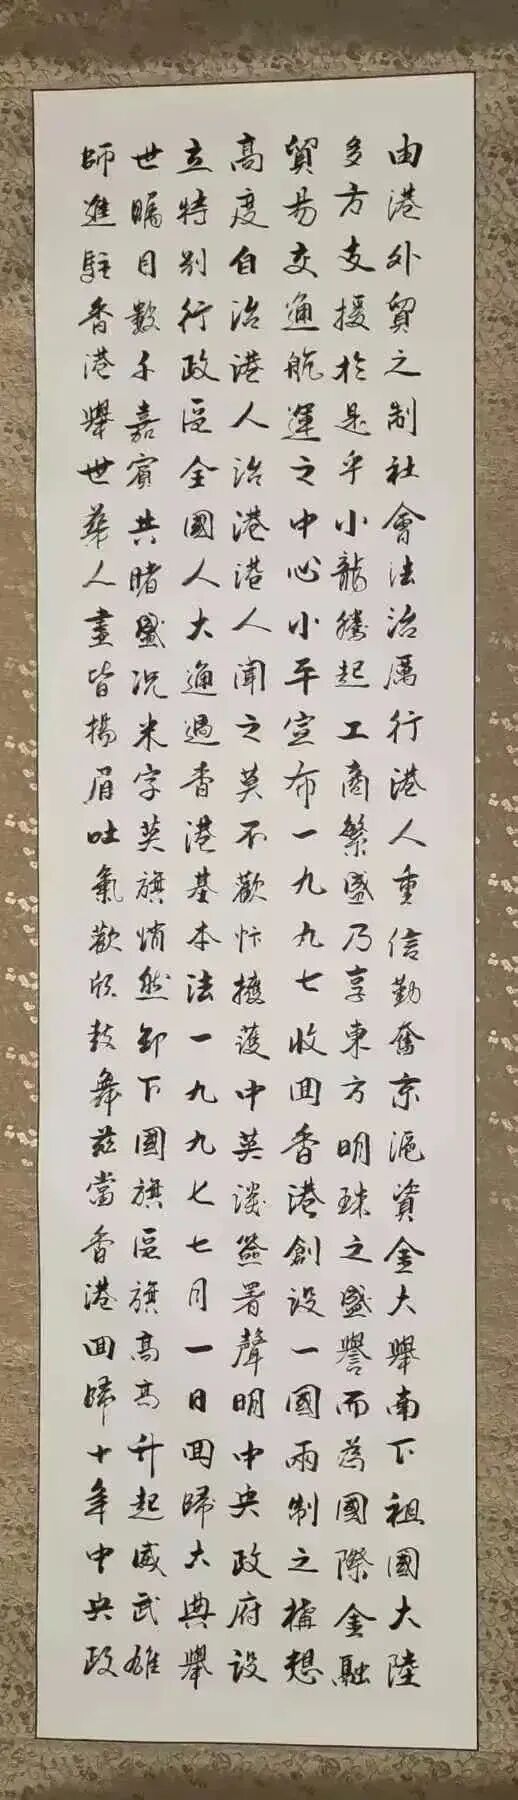 由港外貿之制社會法治厲行港人重信勤奮京滬資金大舉南下祖國大陸
多方支援於是乎小龍騰起工商繁盛乃享東方明珠之盛譽而為國際金融
貿易交通航運之中心小平宣布一九九七收回香港創設一國兩制之構想
高度自治港人治港港人聞之莫不歡忭擁護中英談簽署聲明中央政府設
立特別行政區全國人大通過香港基本法一九九七七月一日回歸大典舉
世矚目數千嘉賓共睹盛况米字英旗悄然卸下國旗區旗高高升起威武雄
師進駐香港舉世華人盡皆揚眉吐氣歡欣鼓舞茲當香港回歸十年中央政